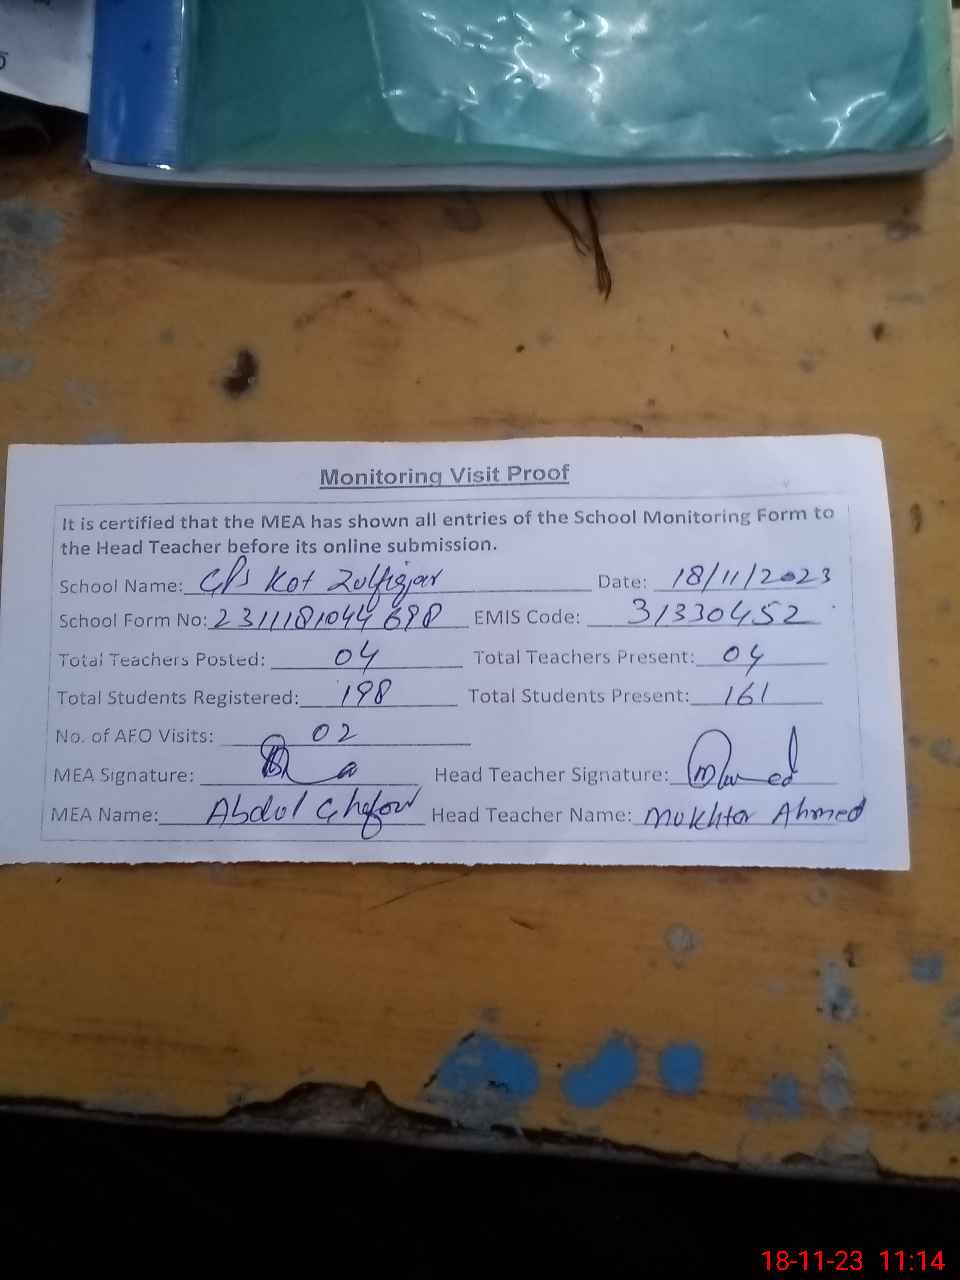 Monitoring Visit Proof
It is certified that the MEA has shown all entries of the School Monitoring Form to
the Head Teacher before its online submission.
School Name: GPS Kot Zulfiqar Date: 18/11/2023
School Form No: 2311181044698 EMIS Code: 31330452
Total Teachers Posted: 04 Total Teachers Present: 04
Total Students Registered: 198 Total Students Present: 161
No. of AEO Visits: 02
MEA Signature: Head Teacher Signature:
MEA Name: Abdul Ghafoor Head Teacher Name: Mukhtar Ahmed
18-11-23 11:14